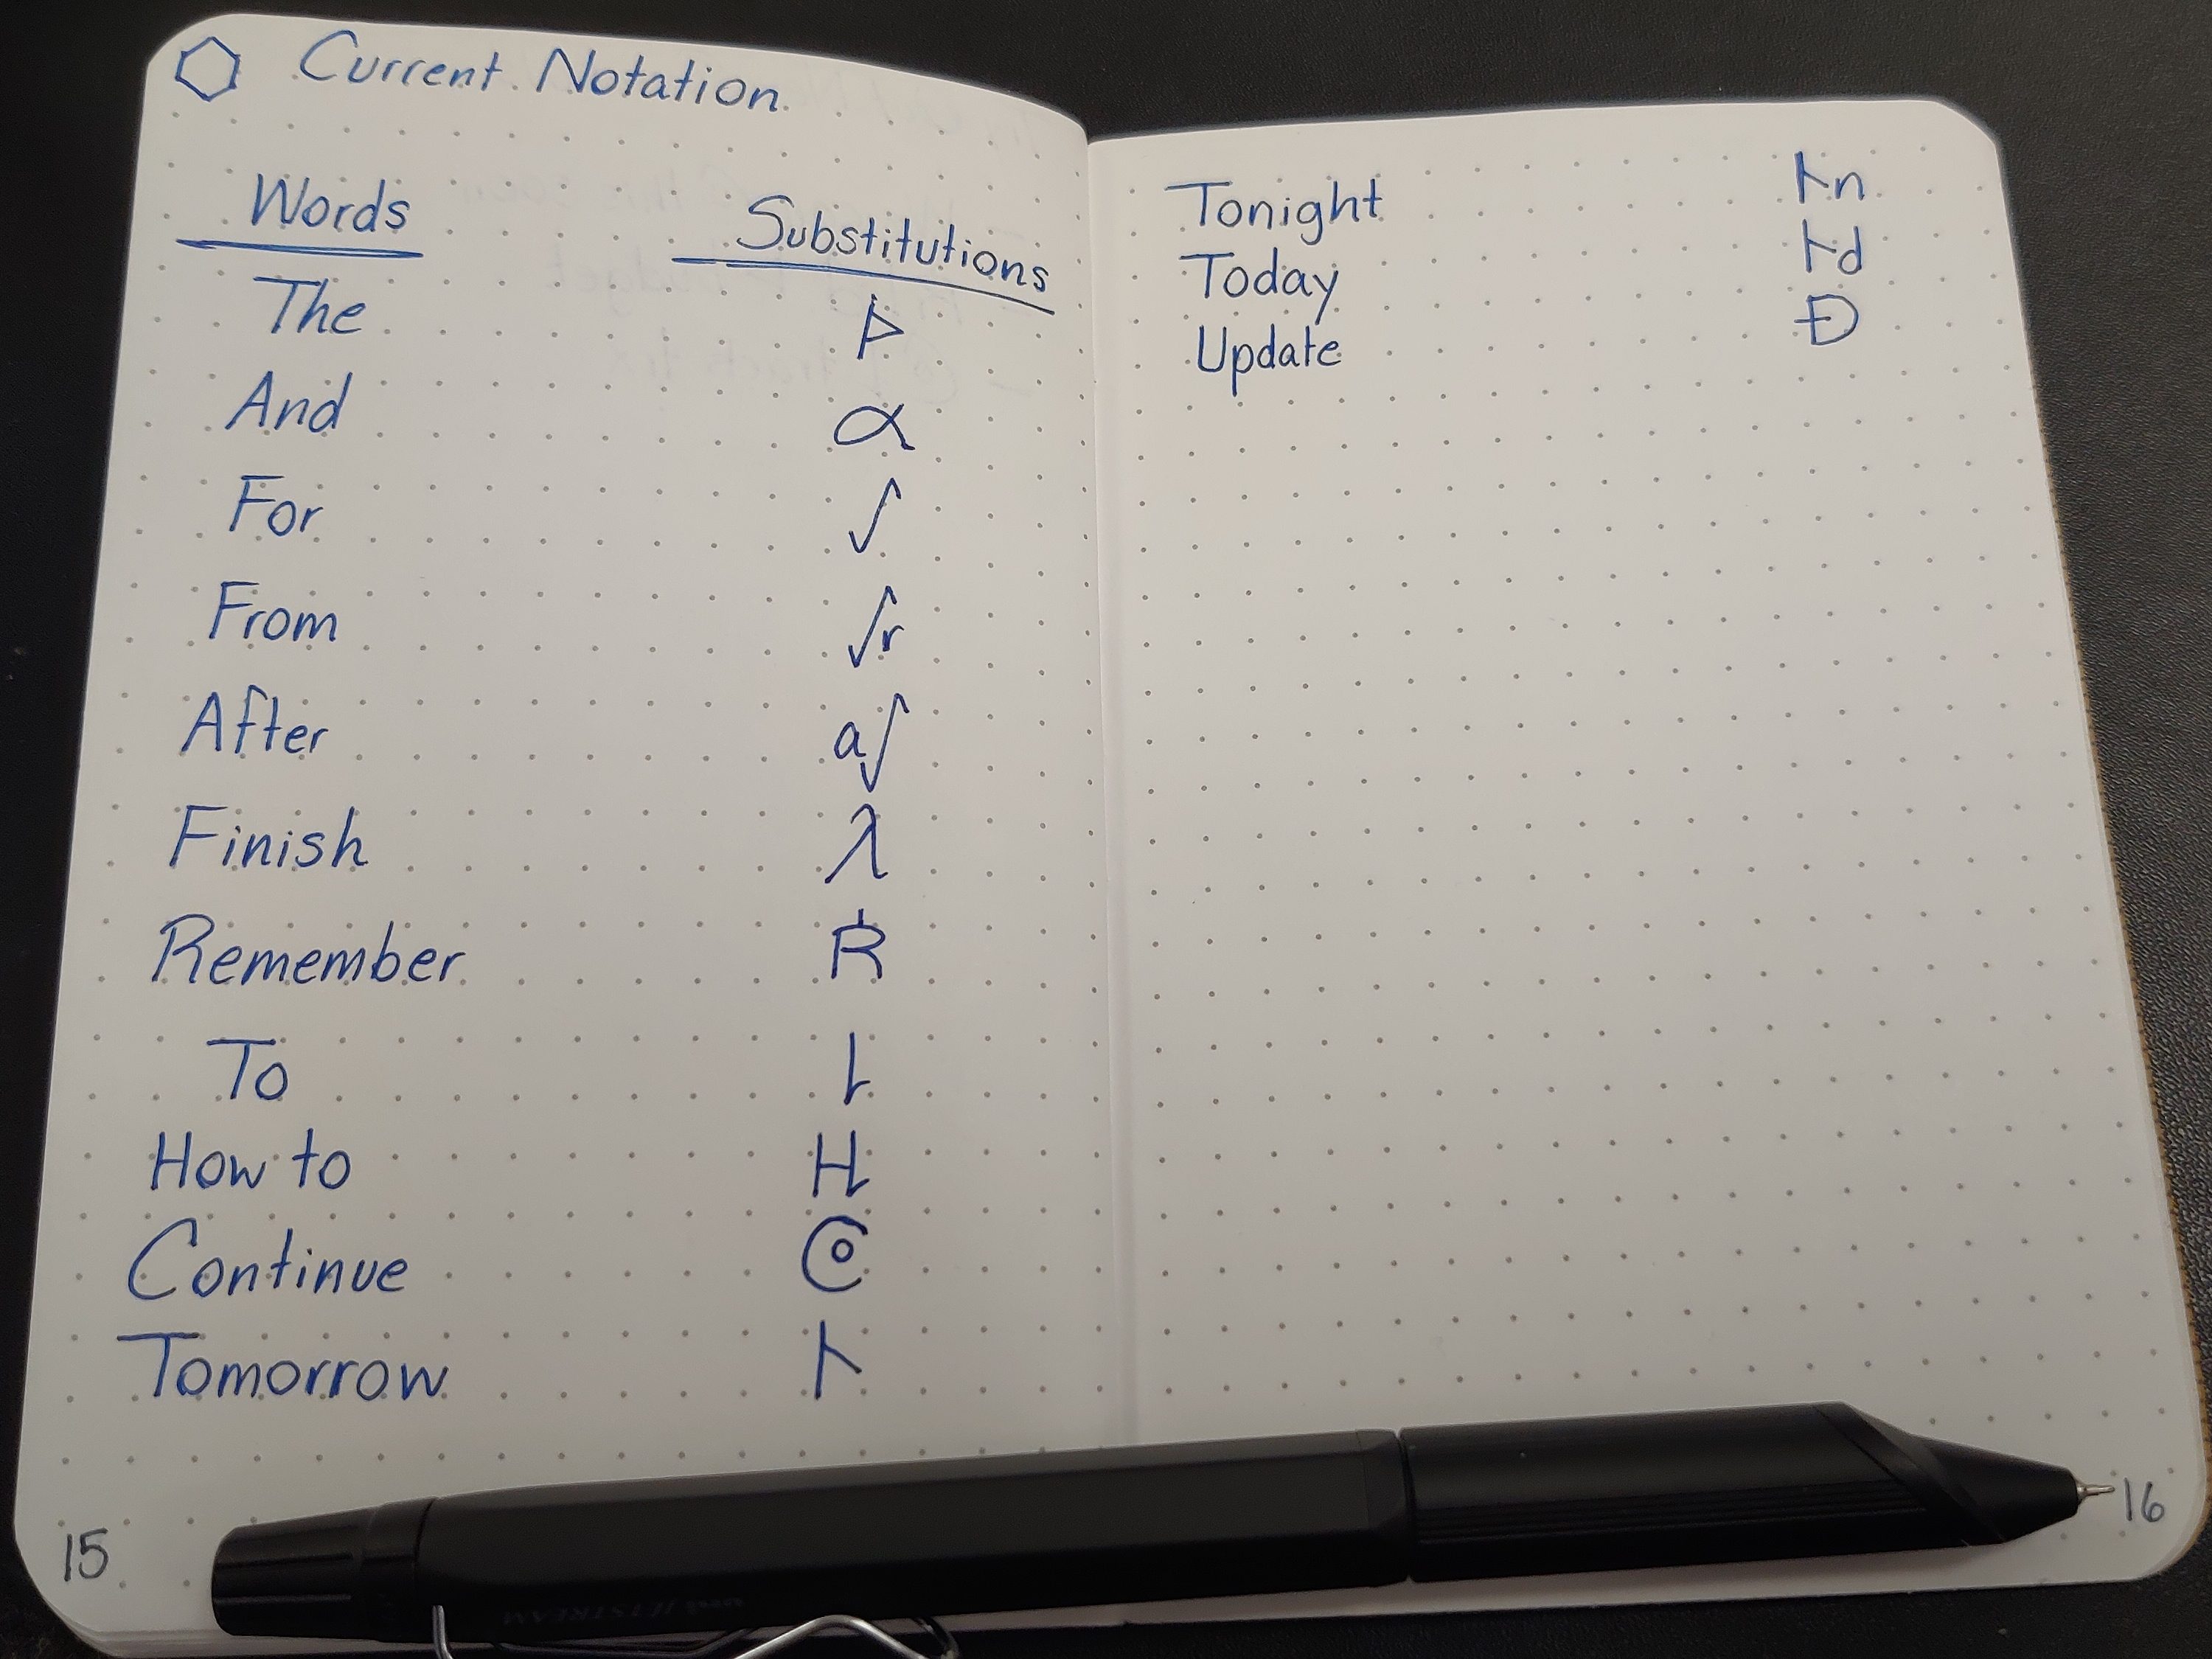 Current Notation
Words Substitutions
The Þ
And α
For ∫
From ∫r
After a∫
Finish λ
Remember R
To ⇂
How to H
Continue C
Tomorrow ト
15
Tonight トn
Today トd
Update Đ
16
uni JETSTREAM